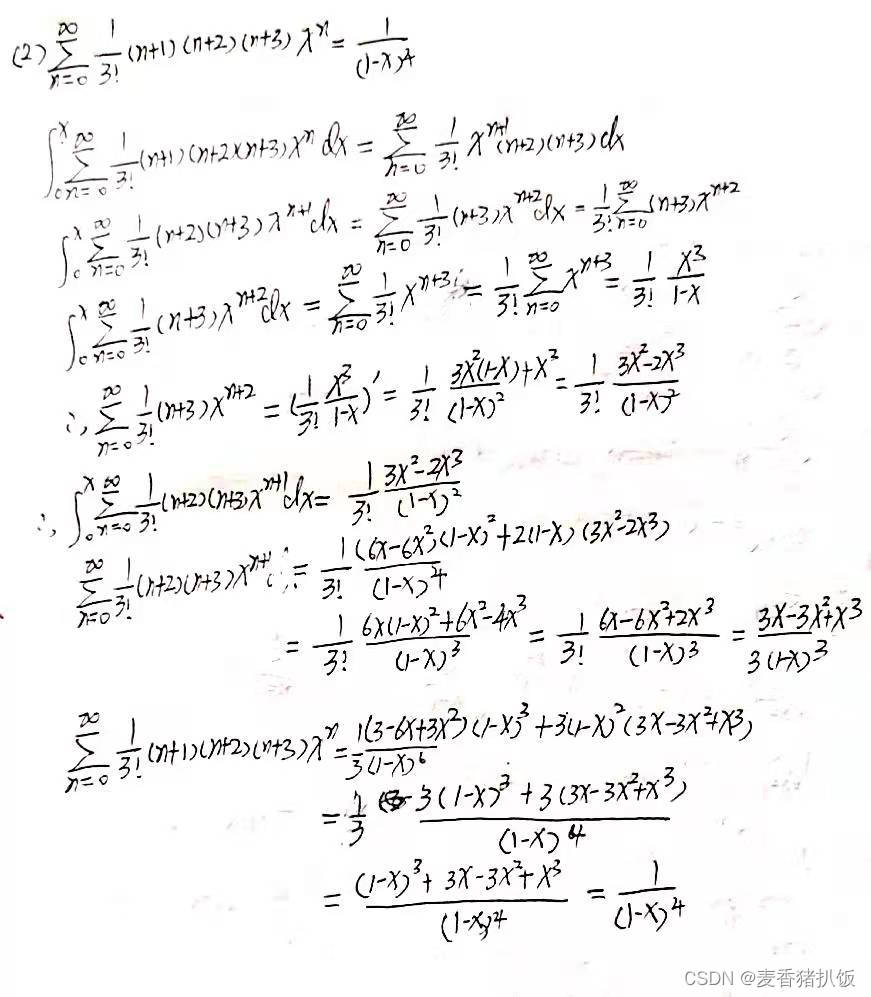 (2) ∑_{n=0}^{∞} 1/3! (n+1)(n+2)(n+3) x^n = 1/(1-x)^4
∫_0^x ∑_{n=0}^{∞} 1/3! (n+1)(n+2)(n+3) x^n dx = ∑_{n=0}^{∞} 1/3! x^{n+1} (n+2)(n+3) dx
∫_0^x ∑_{n=0}^{∞} 1/3! (n+2)(n+3) x^{n+1} dx = ∑_{n=0}^{∞} 1/3! (n+3) x^{n+2} dx = 1/3! ∑_{n=0}^{∞} (n+3) x^{n+2}
∫_0^x ∑_{n=0}^{∞} 1/3! (n+3) x^{n+2} dx = ∑_{n=0}^{∞} 1/3! x^{n+3} = 1/3! ∑_{n=0}^{∞} x^{n+3} = 1/3! x^3/(1-x)
∴ ∑_{n=0}^{∞} 1/3! (n+3) x^{n+2} = (1/3! x^3/(1-x))' = 1/3! (3x^2(1-x)+x^3)/(1-x)^2 = 1/3! (3x^2-2x^3)/(1-x)^2
∴ ∫_0^x ∑_{n=0}^{∞} 1/3! (n+2)(n+3) x^{n+1} dx = 1/3! (3x^2-2x^3)/(1-x)^2
∑_{n=0}^{∞} 1/3! (n+2)(n+3) x^{n+1} = 1/3! ((6x-6x^2)(1-x)^2+2(1-x)(3x^2-2x^3))/(1-x)^4
= 1/3! (6x(1-x)^2+6x^2-4x^3)/(1-x)^3 = 1/3! (6x-6x^2+2x^3)/(1-x)^3 = (3x-3x^2+x^3)/(3(1-x)^3)
∑_{n=0}^{∞} 1/3! (n+1)(n+2)(n+3) x^n = 1/3 ((3-6x+3x^2)(1-x)^3+3(1-x)^2(3x-3x^2+x^3))/(1-x)^6
= 1/3 (3(1-x)^3+3(3x-3x^2+x^3))/(1-x)^4
= ((1-x)^3+3x-3x^2+x^3)/(1-x)^4 = 1/(1-x)^4
CSDN @麦香猪扒饭